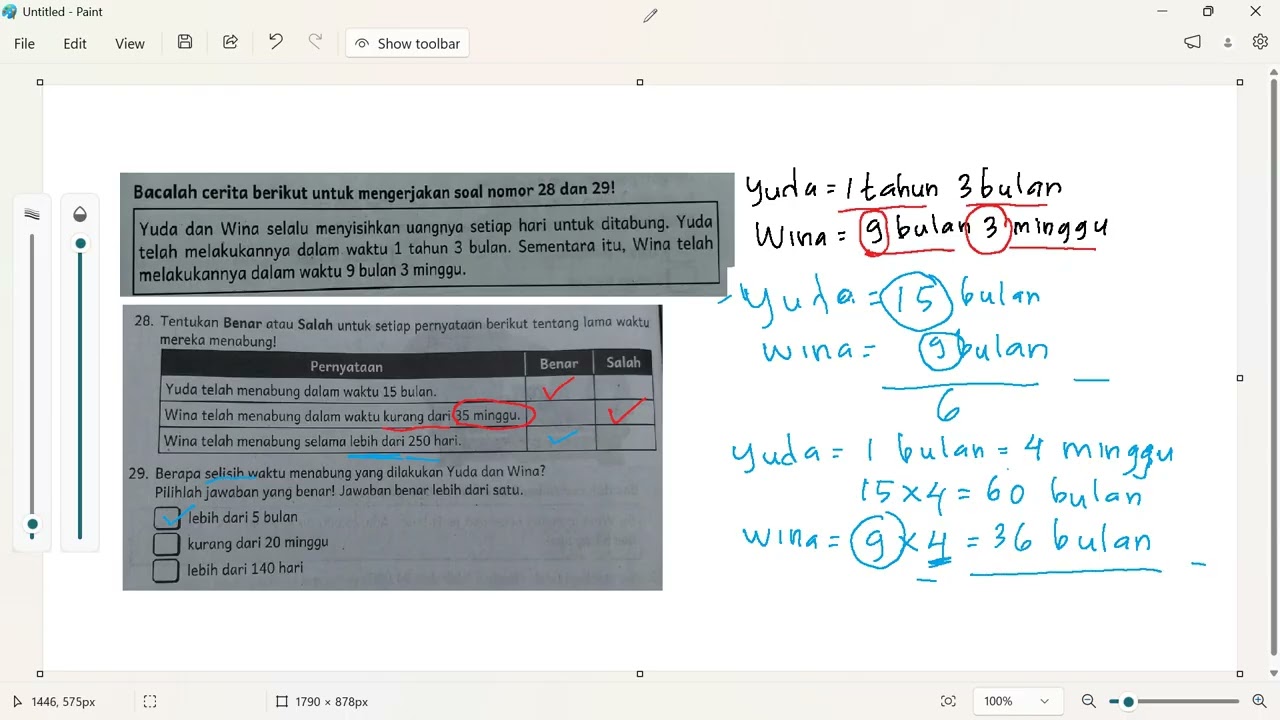 Untitled - Paint
File Edit View Show toolbar
Bacalah cerita berikut untuk mengerjakan soal nomor 28 dan 29!
Yuda dan Wina selalu menyisihkan uangnya setiap hari untuk ditabung. Yuda
telah melakukannya dalam waktu 1 tahun 3 bulan. Sementara itu, Wina telah
melakukannya dalam waktu 9 bulan 3 minggu.
28. Tentukan Benar atau Salah untuk setiap pernyataan berikut tentang lama waktu
mereka menabung!
Pernyataan Benar Salah
Yuda telah menabung dalam waktu 15 bulan.
Wina telah menabung dalam waktu kurang dari 35 minggu.
Wina telah menabung selama lebih dari 250 hari.
29. Berapa selisih waktu menabung yang dilakukan Yuda dan Wina?
Pilihlah jawaban yang benar! Jawaban benar lebih dari satu.
lebih dari 5 bulan
kurang dari 20 minggu
lebih dari 140 hari
Yuda = 1 tahun 3 bulan
Wina = 9 bulan 3 minggu
Yuda = 15 bulan
Wina = 9 bulan
6
Yuda = 1 bulan = 4 minggu
15 × 4 = 60 bulan
Wina = 9 × 4 = 36 bulan
1446, 575px
1790 × 878px
100%